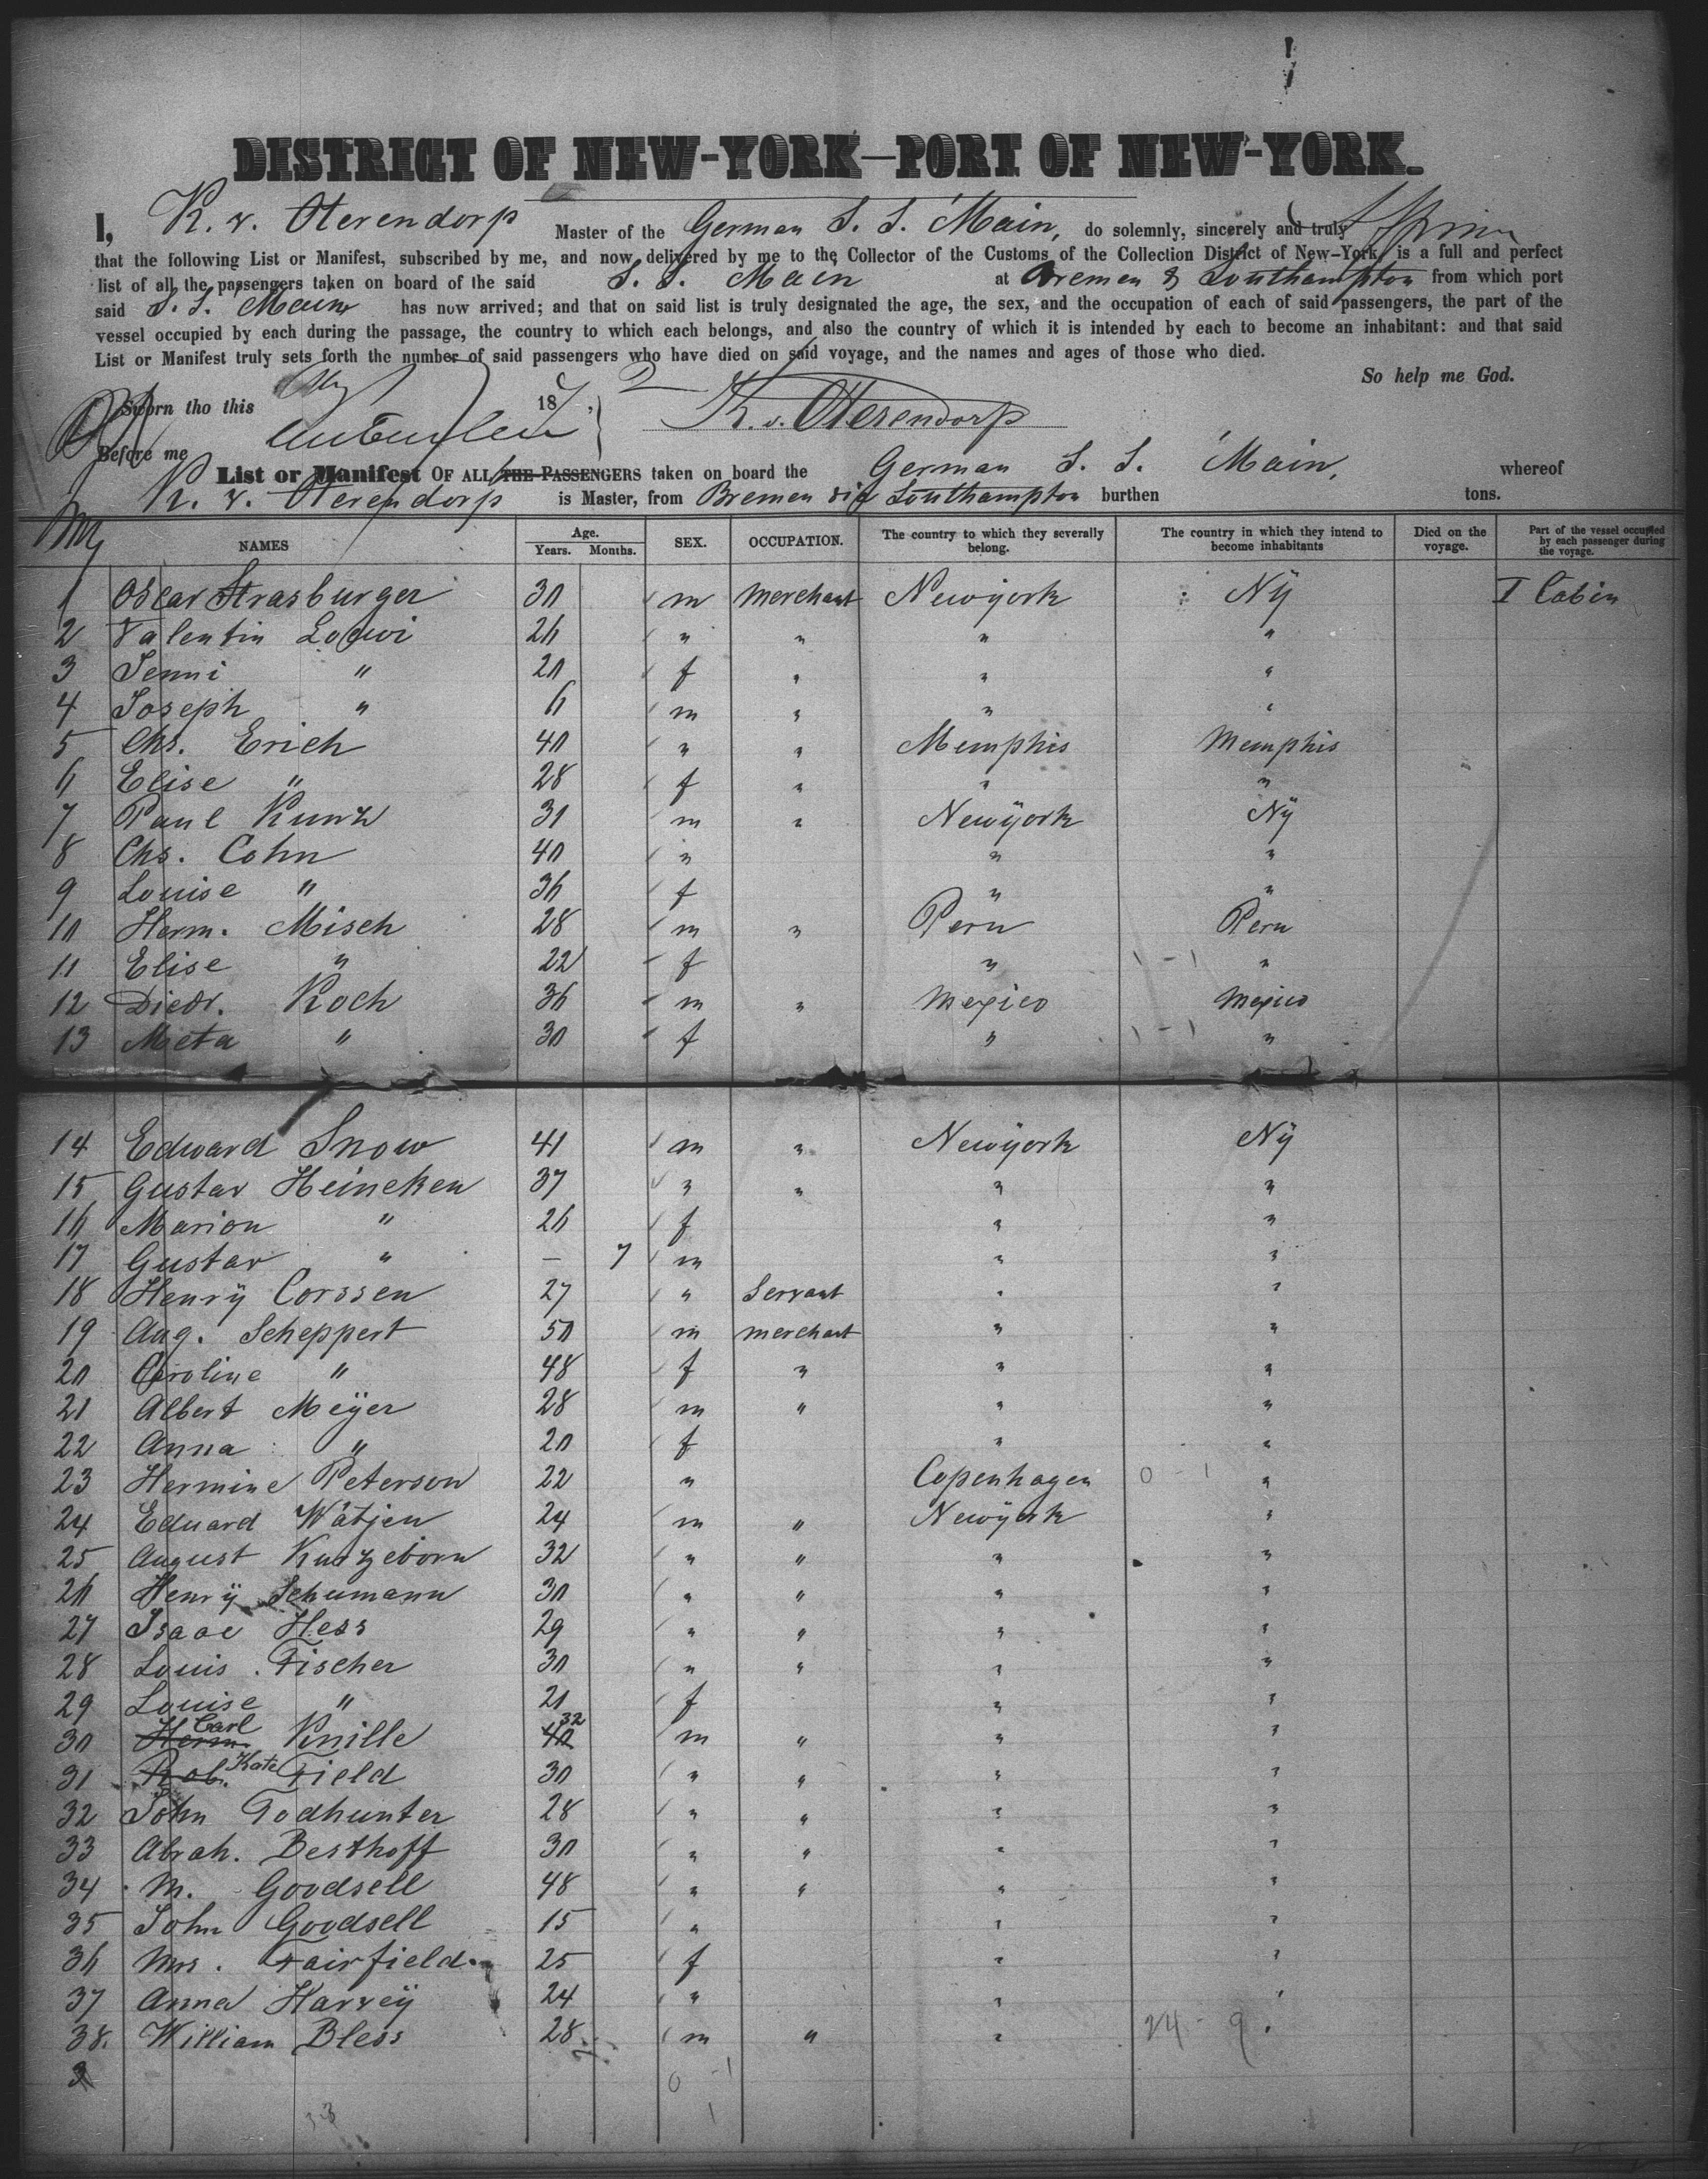 DISTRICT OF NEW-YORK—PORT OF NEW-YORK.
I, K. v. Oterendorp Master of the German S. S. Main, do solemnly, sincerely and truly
that the following List or Manifest, subscribed by me, and now delivered by me to the Collector of the Customs of the Collection District of New-York, is a full and perfect
list of all the passengers taken on board of the said S. S. Main at Bremen & Southampton from which port
said S. S. Main has now arrived; and that on said list is truly designated the age, the sex, and the occupation of each of said passengers, the part of the
vessel occupied by each during the passage, the country to which each belongs, and also the country of which it is intended by each to become an inhabitant: and that said
List or Manifest truly sets forth the number of said passengers who have died on said voyage, and the names and ages of those who died.
So help me God.
Sworn tho this 187 , K. v. Oterendorp
Before me
List or Manifest OF ALL THE PASSENGERS taken on board the German S. S. Main, whereof
K. v. Oterendorp is Master, from Bremen via Southampton burthen tons.
NAMES Age. Years. Months. SEX. OCCUPATION. The country to which they severally belong. The country in which they intend to become inhabitants Died on the voyage. Part of the vessel occupied by each passenger during the voyage.
1 Oscar Strasburger 30 m Merchant Newyork Ny I Cabin
2 Valentin Loewi 26 " " " "
3 Jenni " 20 f " " "
4 Joseph " 6 m " " "
5 Chs. Erich 40 " " Memphis Memphis
6 Elise " 28 f " " "
7 Paul Kunz 31 m " Newyork Ny
8 Chs. Cohn 40 " " "
9 Louise " 36 f " "
10 Herm. Misch 28 m " Peru Peru
11 Elise " 22 f " 1 - 1 "
12 Diedr. Koch 36 m " Mexico Mexico
13 Meta " 30 f " 1 - 1 "
14 Edward Snow 41 m " Newyork Ny
15 Gustav Heineken 37 " " " "
16 Marion " 26 f " "
17 Gustav " — 7 m " "
18 Henry Corssen 27 " Servant " "
19 Aug. Scheppert 50 m merchant " "
20 Caroline " 48 f " " "
21 Albert Meyer 28 m " " "
22 Anna " 20 f " "
23 Hermine Peterson 22 " Copenhagen 0 - 1 "
24 Eduard Wätjen 24 m " Newyork "
25 August Kurtzeborn 32 " " " "
26 Henry Schumann 30 " " " "
27 Isaac Hess 29 " " " "
28 Louis Fischer 30 " " " "
29 Louise " 21 f " "
30 Herm. Carl Knille 40 32 m " " "
31 Rob. Kate Field 30 " " " "
32 John Todhunter 28 " " " "
33 Abrah. Besthoff 30 " " " "
34 M. Goodsell 48 " " " "
35 John Goodsell 15 " " "
36 Mrs. Fairfield 25 f " "
37 Anna Harvey 24 " " "
38. William Bless 28 m " " 24 - 9 "
3
0 - 1
33 1